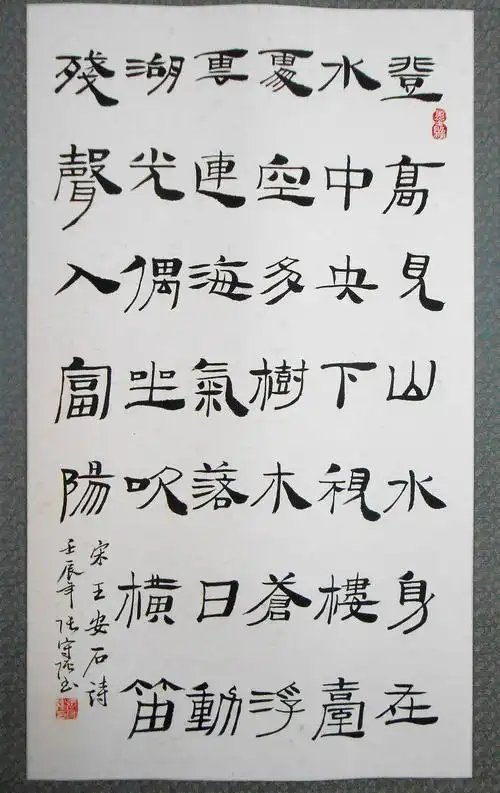 登高見山水身在
水中央下視樓臺
處空多樹木蒼浮
雲連海氣落日動
湖光偶坐吹橫笛
殘聲入富陽
宋王安石詩
壬辰年張守書